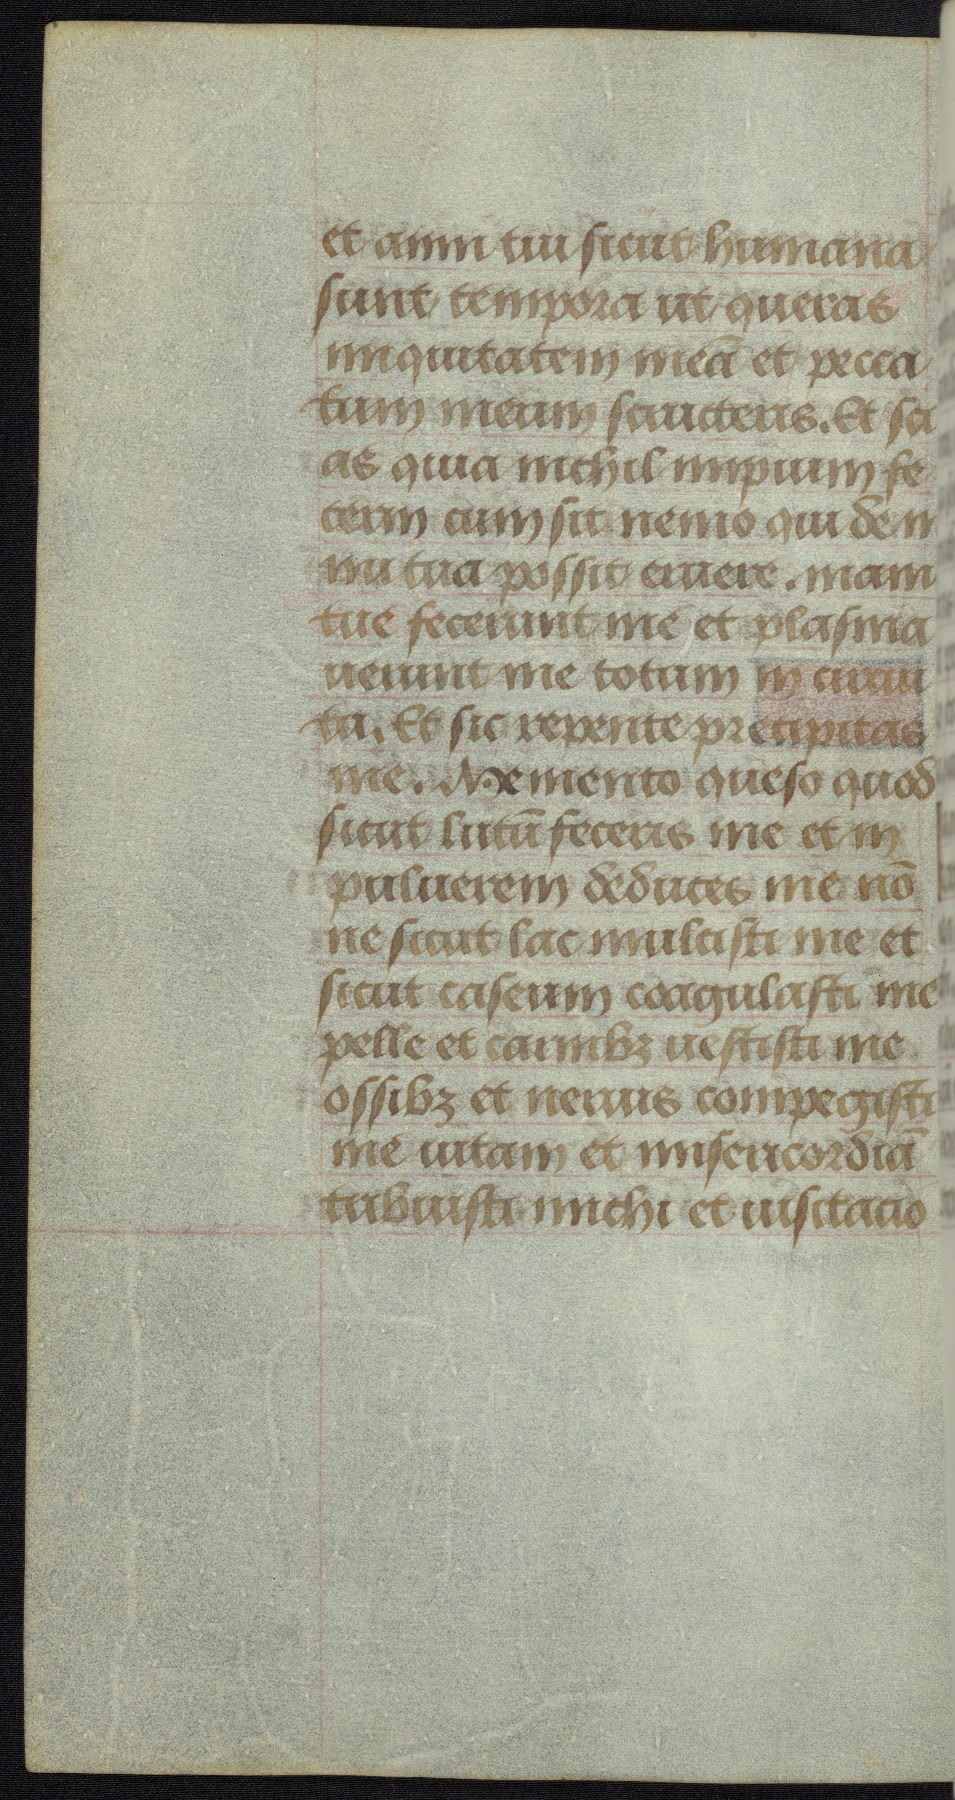 et anni tui sicut humana
sunt tempora ut queras
iniquitatem meā et pecca
tum meum scruteris. Et sci
as quia nichil impium fe
cerim cum sit nemo qui de m
nu tua possit eruere. manu
tue fecerunt me et plasma
uerunt me totum in circui
tu. Et sic repente precipitas
me. Memento queso quod
sicut lutū feceris me et in
puluerem deduces me nō
ne sicut lac mulcisti me et
sicut caseum coagulasti me
pelle et carnibꝫ uestisti me
ossibꝫ et neruis compegisti
me uitam et misericordiā
tribuisti michi et uisitacio